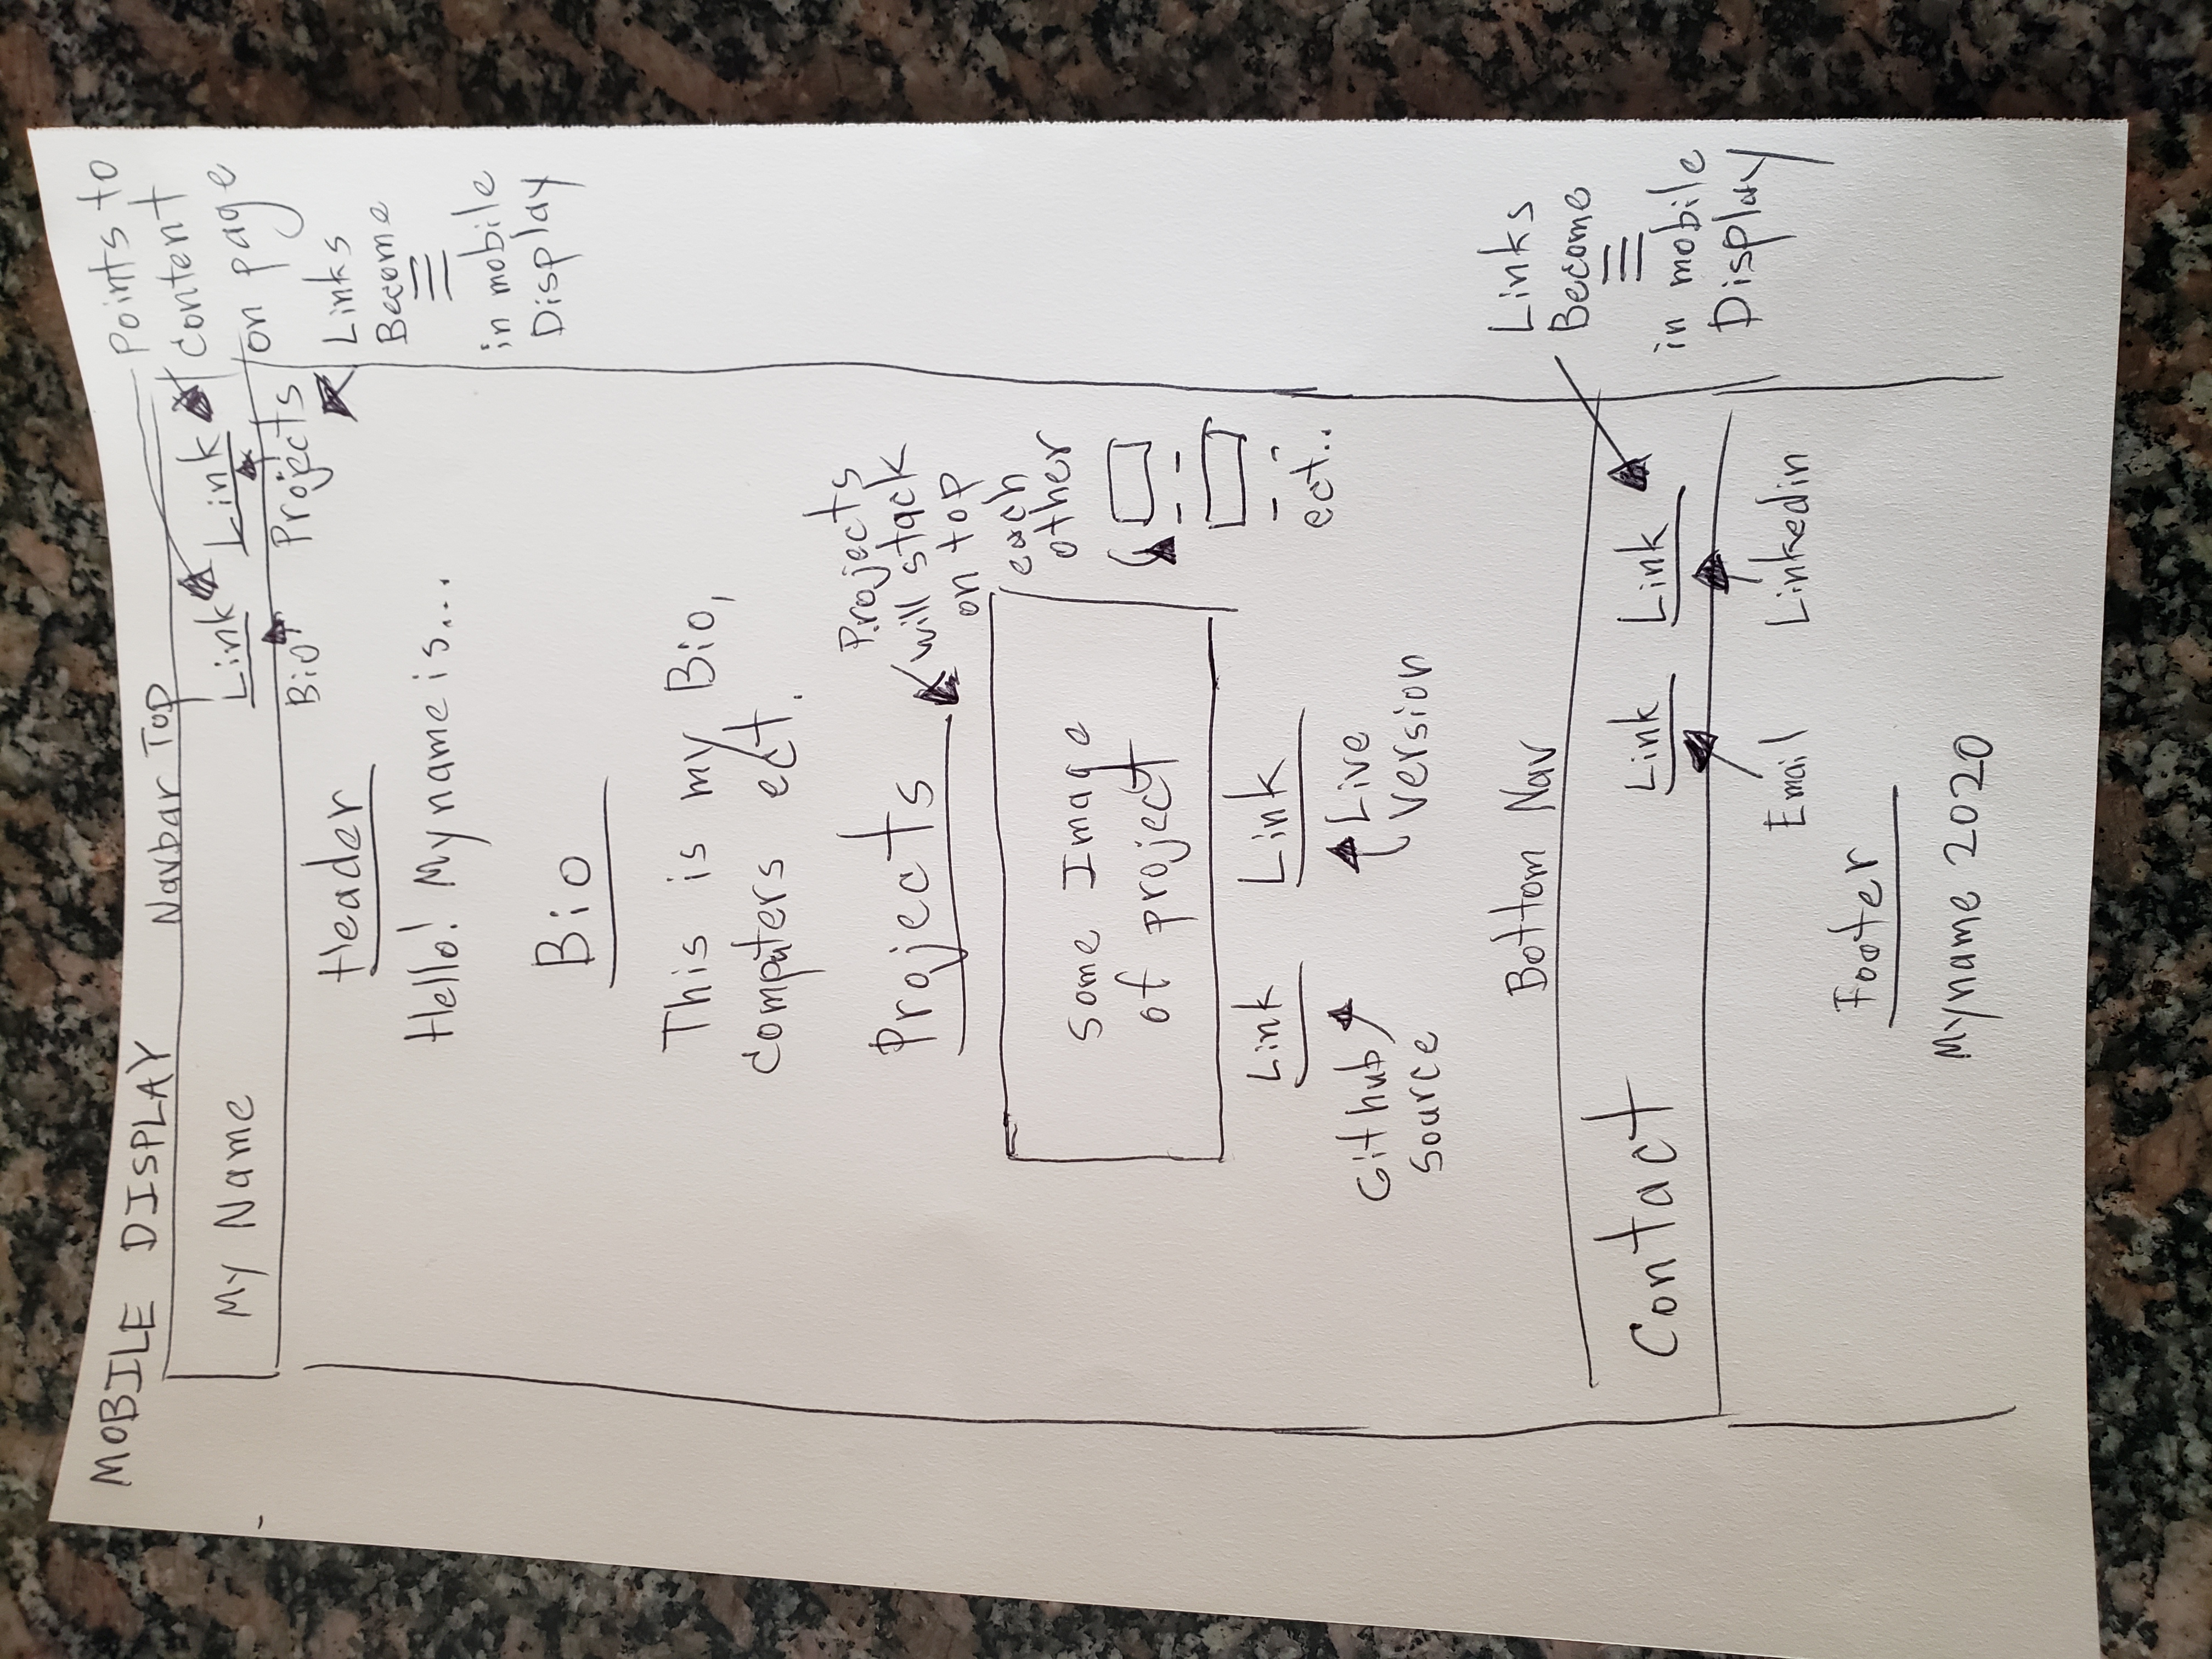 MOBILE DISPLAY
Navbar Top
Points to
content
on page
My Name
Link Link
Bio Projects
Links
Become
in mobile
Display
Header
Hello! My name is...
Bio
This is my Bio,
computers ect.
Projects
Projects
will stack
on top
each
other
ect..
Some Image
of project
Link Link
Github
Source
Live
Version
Bottom Nav
Contact
Link Link
Email Linkedin
Links
Become
in mobile
Display
Footer
Myname 2020